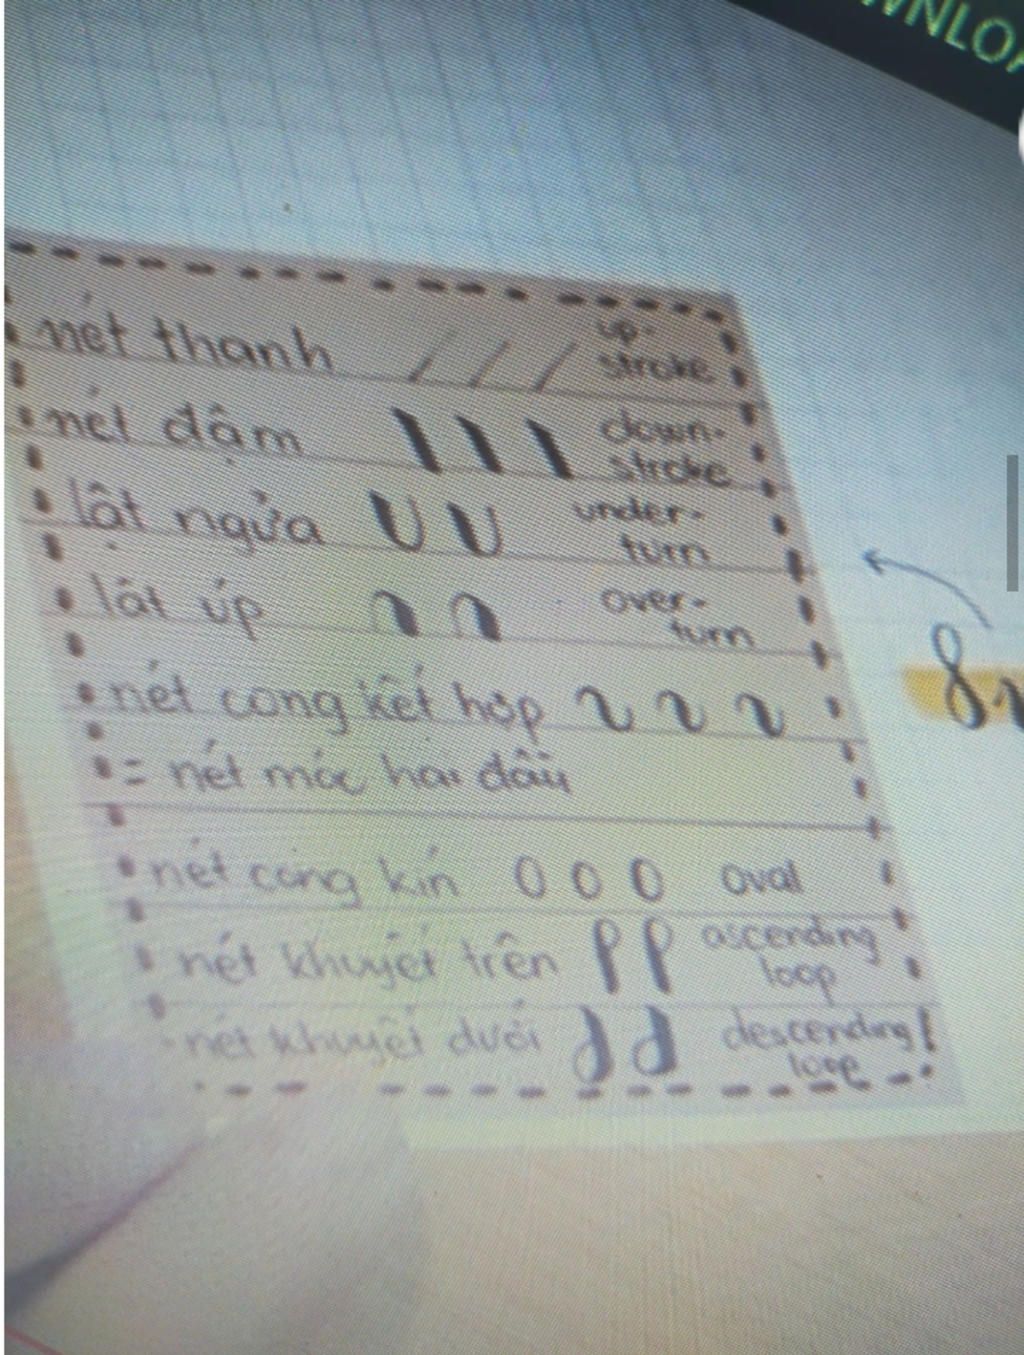 nét thanh up-
stroke
nét đậm down-
stroke
lật ngửa under-
turn
lật úp over-
turn
nét cong kết hợp
= nét móc hai đầu
nét cong kín oval
nét khuyết trên ascending
loop
nét khuyết dưới descending
loop